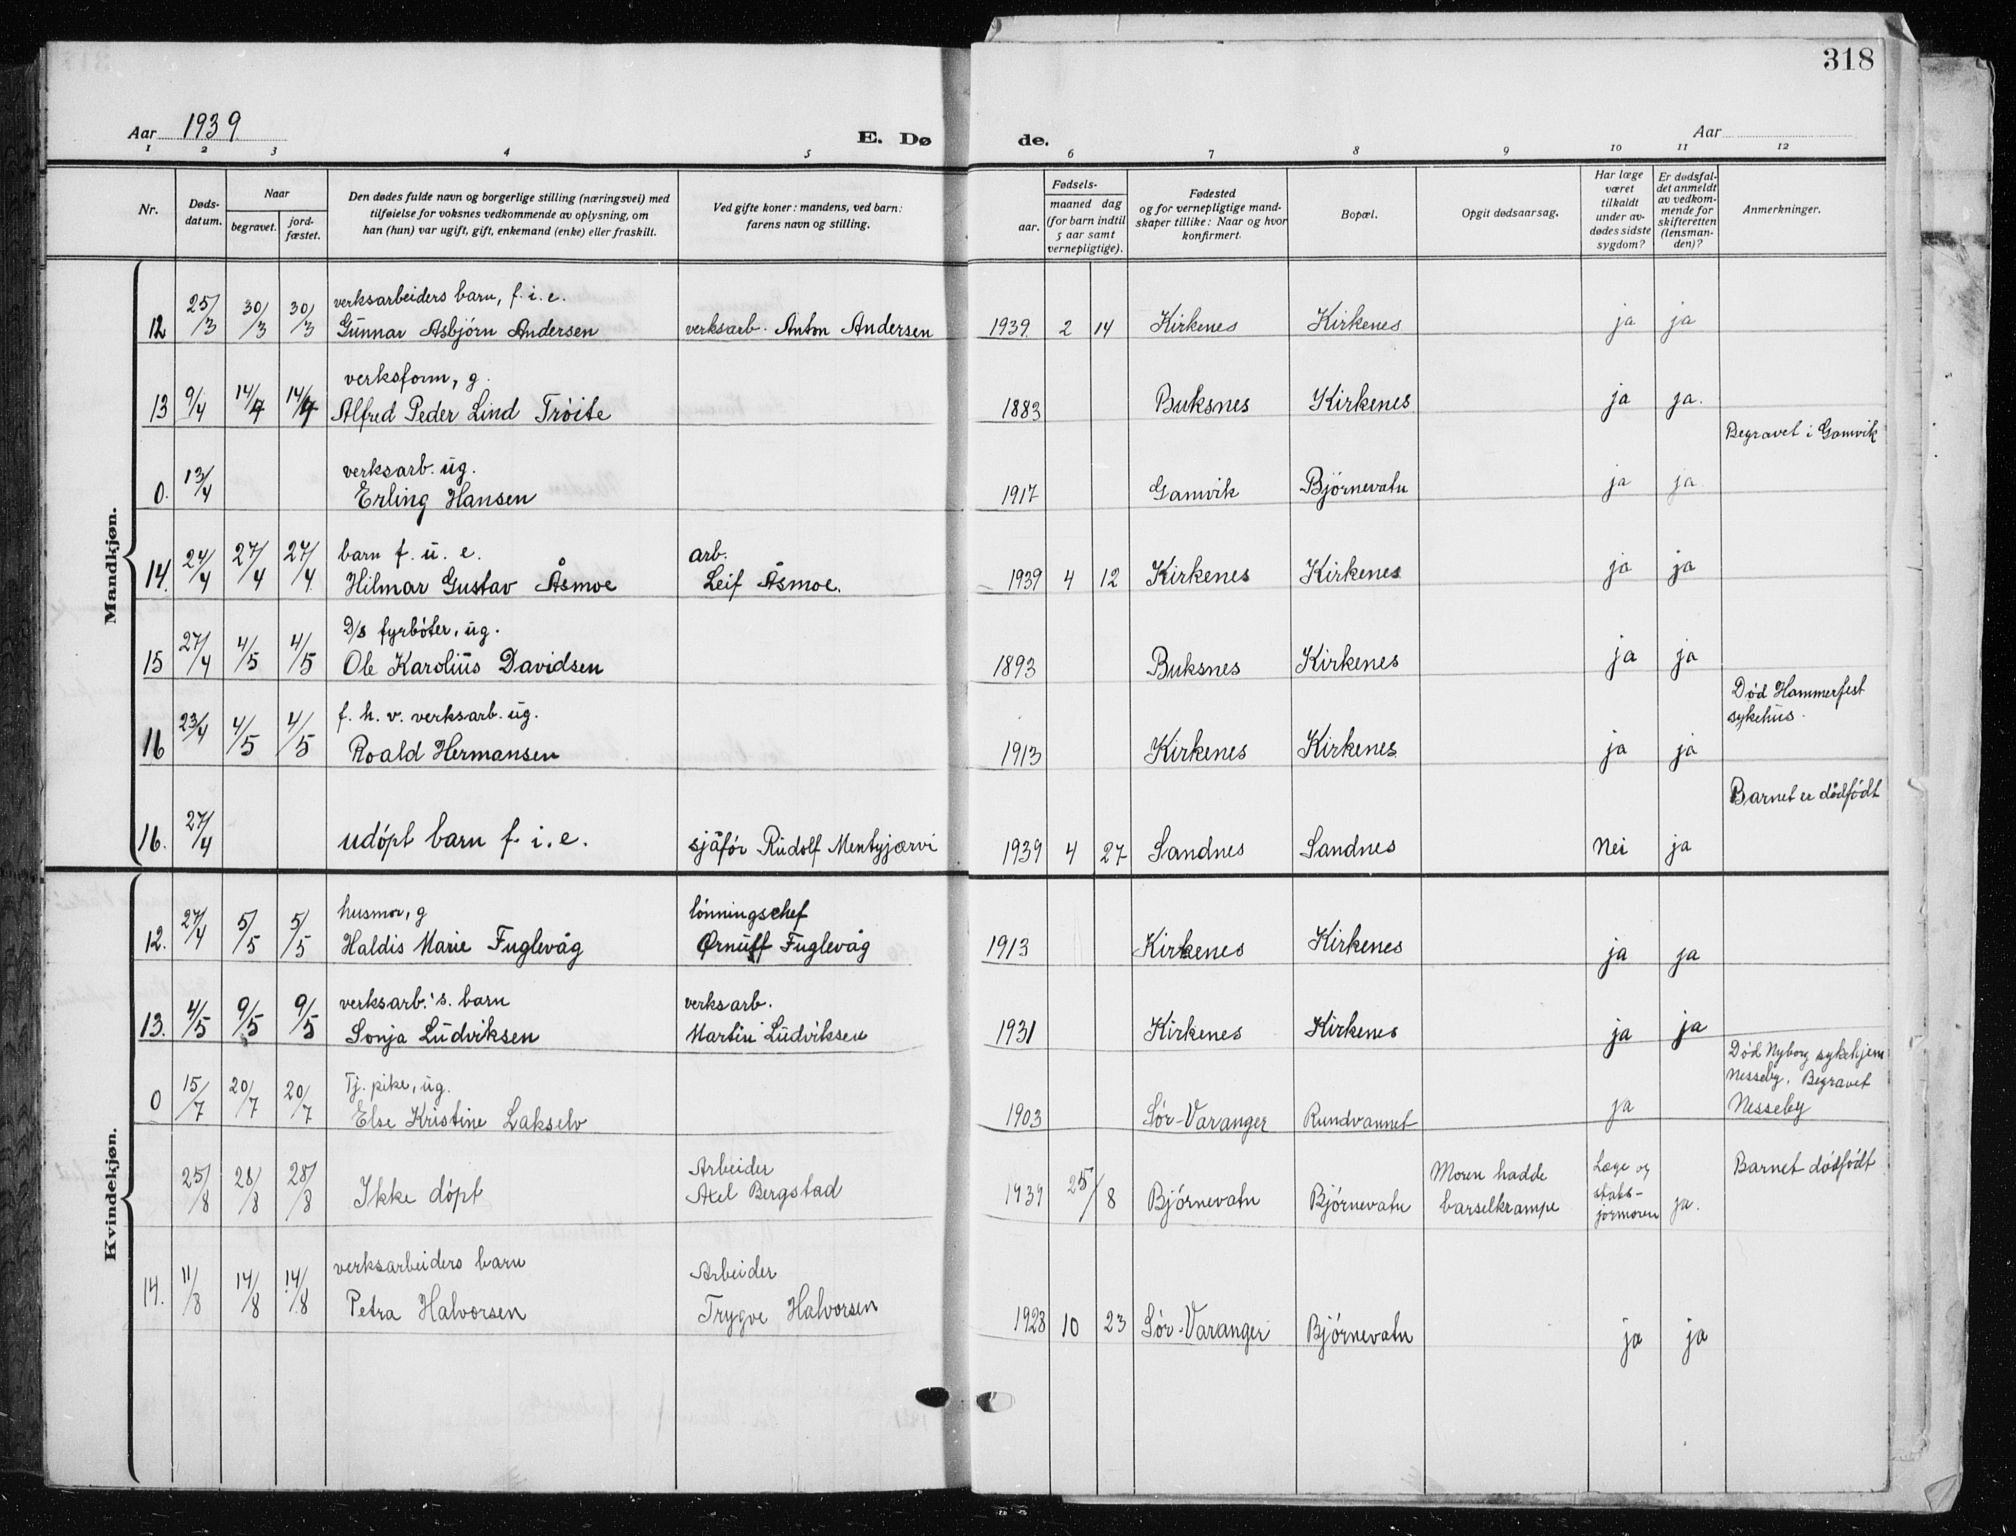 318
Aar 1939
E. Dø
de.
Aar
1 2 3 4 5 6 7 8 9 10 11 12
Nr.
Døds-
datum.
Naar
begravet.
jord-
fæstet.
Den dødes fulde navn og borgerlige stilling (næringsvei) med
tilføielse for voksnes vedkommende av oplysning, om
han (hun) var ugift, gift, enkemand (enke) eller fraskilt.
Ved gifte koner: mandens, ved barn:
farens navn og stilling.
Fødsels-
aar.
maaned dag
(for barn indtil
5 aar samt
vernepligtige).
Fødested
og for vernepligtige mand-
skaper tillike: Naar og hvor
konfirmert.
Bopæl.
Opgit dødsaarsag.
Har læge
været
tilkaldt
under av-
dødes sidste
sygdom?
Er dødsfal-
det anmeldt
av vedkom-
mende for
skifteretten
(lensman-
den)?
Anmerkninger.
Mandkjøn.
verksarbeiders barn, f. i. e.
12 25/3 30/3 30/3 Gunnar Asbjörn Andersen verksarb. Anton Andersen 1939 2 14 Kirkenes Kirkenes ja ja
verksform, g.
13 9/4 14/4 14/4 Alfred Peder Lind Tröite 1883 Buksnes Kirkenes ja ja.
Begravet i Gamvik
verksarb. ug.
0. 13/4 Erling Hansen 1917 Gamvik Bjørnevatn ja ja
barn f. u. e. arb.
14. 24/4 27/4 27/4 Hilmar Gustav Åsmoe Leif Åsmoe. 1939 4 12 Kirkenes Kirkenes ja ja
D/s fyrböter, ug.
15 27/4 4/5 4/5 Ole Karolius Davidsen 1893 Buksnes Kirkenes ja ja
Død Hammerfest
sykehus.
f. h. v. verksarb. ug.
16 23/4 4/5 4/5 Roald Hermansen 1913 Kirkenes Kirkenes ja ja
Barnet er dødfødt
16. 27/4 udöpt barn f. i. e. sjåför Rudolf Mentyjærvi 1939 4 27 Sandnes Sandnes Nei ja
Kvindekjøn.
husmor, g lönningschef
12. 27/4 5/5 5/5 Haldis Marie Fuglevåg Ørnulf Fuglevåg 1913 Kirkenes Kirkenes ja ja
verksarb.'s. barn verksarb.
13. 4/5 9/5 9/5 Sonja Ludviksen Martin Ludviksen 1931 Kirkenes Kirkenes ja ja
Død Nyborg sykehjem
Nesseby. Begravet
Nesseby
Tj. pike, ug.
0 15/7 20/7 20/7 Else Kristine Lakselv 1903 Sör-Varanger Rundvannet ja
Arbeider Moren hadde Læge og Barnet dødfødt
25/8 28/8 28/8 Ikke döpt Axel Bergstad 1939 25/8 Björnevatn Björnevatn barselkrampe stats-
jormoren ja.
verksarbeiders barn Arbeider
14. 11/8 14/8 14/8 Petra Halvorsen Trygve Halvorsen 1928 10 23 Sör-Varanger Björnevatn ja ja